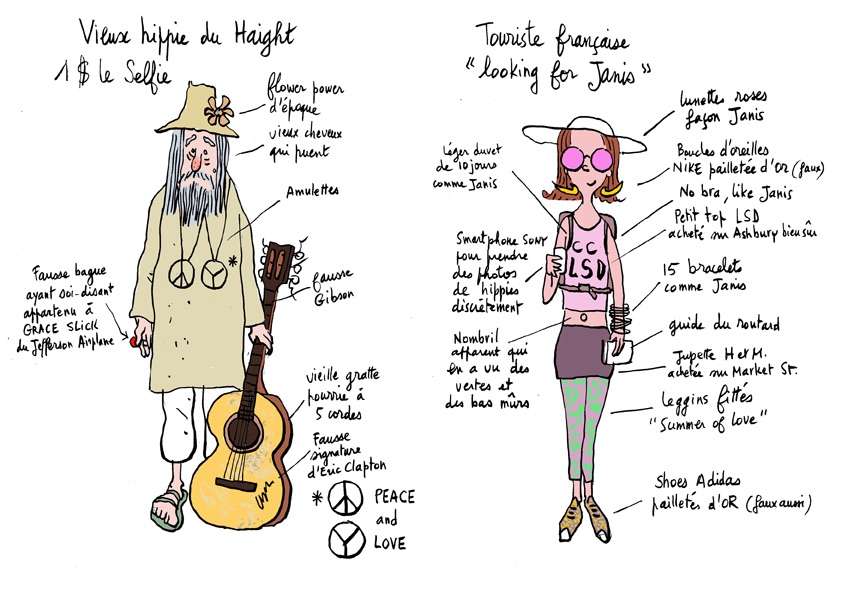 Vieux hippie du Haight
1 $ le Selfie
flower power
d'époque
vieux cheveux
qui puent
Amulettes
*
Fausse bague
ayant soi-disant
appartenu à
GRACE SLICK
du Jefferson Airplane
fausse
Gibson
vieille gratte
pourrie à
5 cordes
Fausse
signature
d'Eric Clapton
* PEACE
and
LOVE
Touriste française
"looking for Janis"
lunettes roses
façon Janis
Léger duvet
de 10 jours
comme Janis
Boucles d'oreilles
NIKE pailletée d'OR (faux)
No bra, like Janis
Petit top LSD
acheté sur Ashbury bien sûr
CC
LSD
Smartphone SONY
pour prendre
des photos
de hippies
discrètement
15 bracelets
comme Janis
guide du routard
Nombril
apparent qui
en a vu des
vertes et
des bas mûrs
Jupette H et M.
achetée sur Market St.
Leggins fittés
"Summer of love"
Shoes Adidas
pailletés d'OR (faux aussi)